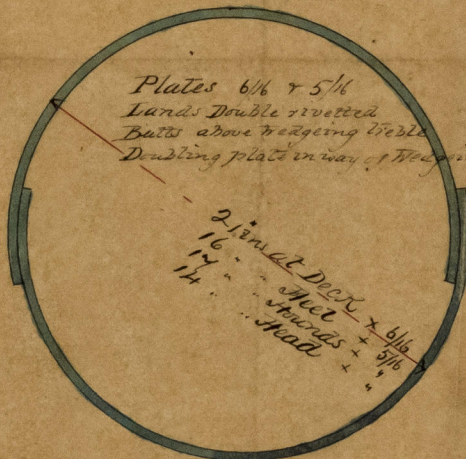 Plates 6/16 & 5/16
Lands Double rivetted
Butts above Wedgeing treble
Doubling plate in way of Wedgei
21 ins at Deck × 6/16
16 " " Heel × 5/16
17 " " Hounds × "
14 " " Head × "